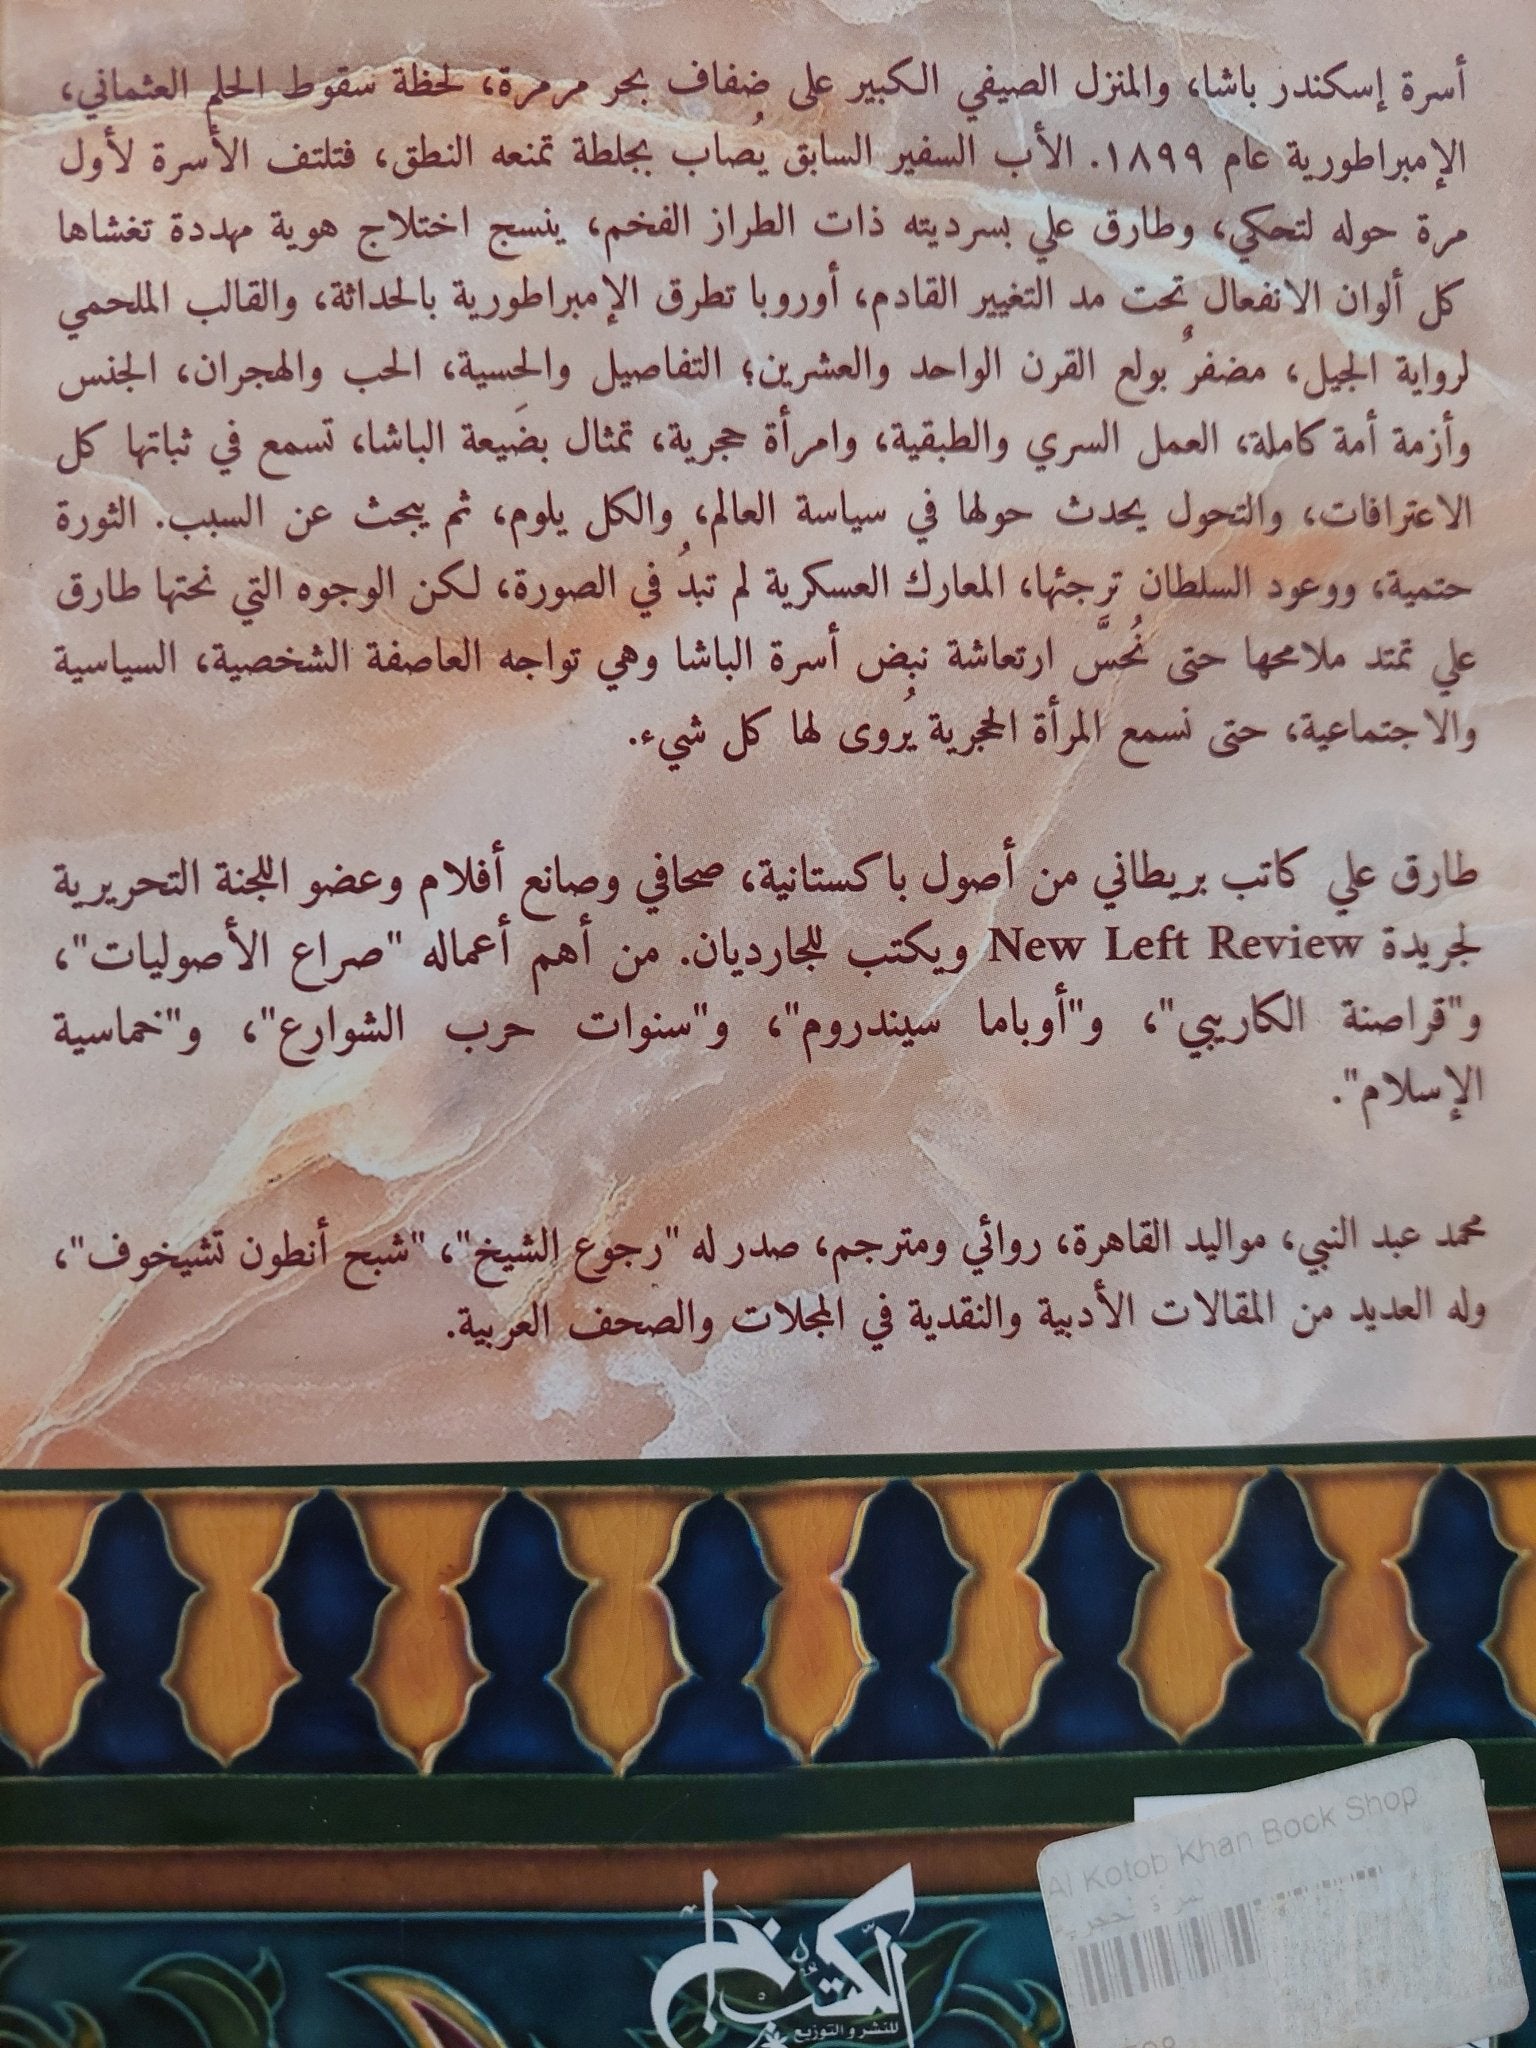 أسرة إسكندر باشا، والمنزل الصيفي الكبير على ضفاف بحر مرمرة، لحظة سقوط الحلم العثماني،
الإمبراطورية عام ١٨٩٩. الأب السفير السابق يُصاب بجلطة تمنعه النطق، فتلتف الأسرة لأول
مرة حوله لتحكي، وطارق علي بسرديته ذات الطراز الفخم، ينسج اختلاج هوية مهددة تغشاها
كل ألوان الانفعال تحت مد التغيير القادم، أوروبا تطرق الإمبراطورية بالحداثة، والقالب الملحمي
لرواية الجيل، مضفرٌ بولع القرن الواحد والعشرين؛ التفاصيل والحسية، الحب والهجران، الجنس
وأزمة أمة كاملة، العمل السري والطبقية، وامرأة حجرية، تمثال بضَيعة الباشا، تسمع في ثباتها كل
الاعترافات، والتحول يحدث حولها في سياسة العالم، والكل يلوم، ثم يبحث عن السبب. الثورة
حتمية، ووعود السلطان ترجئها، المعارك العسكرية لم تبدُ في الصورة، لكن الوجوه التي نحتها طارق
علي تمتد ملامحها حتى نُحسَّ ارتعاشة نبض أسرة الباشا وهي تواجه العاصفة الشخصية، السياسية
والاجتماعية، حتى نسمع المرأة الحجرية يُروى لها كل شيء.
طارق علي كاتب بريطاني من أصول باكستانية، صحافي وصانع أفلام وعضو اللجنة التحريرية
لجريدة New Left Review ويكتب للجارديان. من أهم أعماله "صراع الأصوليات"،
و"قراصنة الكاريبي"، و"أوباما سيندروم"، و"سنوات حرب الشوارع"، و"خماسية
الإسلام".
محمد عبد النبي، مواليد القاهرة، روائي ومترجم، صدر له "رجوع الشيخ"، "شبح أنطون تشيخوف"،
وله العديد من المقالات الأدبية والنقدية في المجلات والصحف العربية.
Al Kotob Khan Book Shop
الكتب خان
للنشر والتوزيع